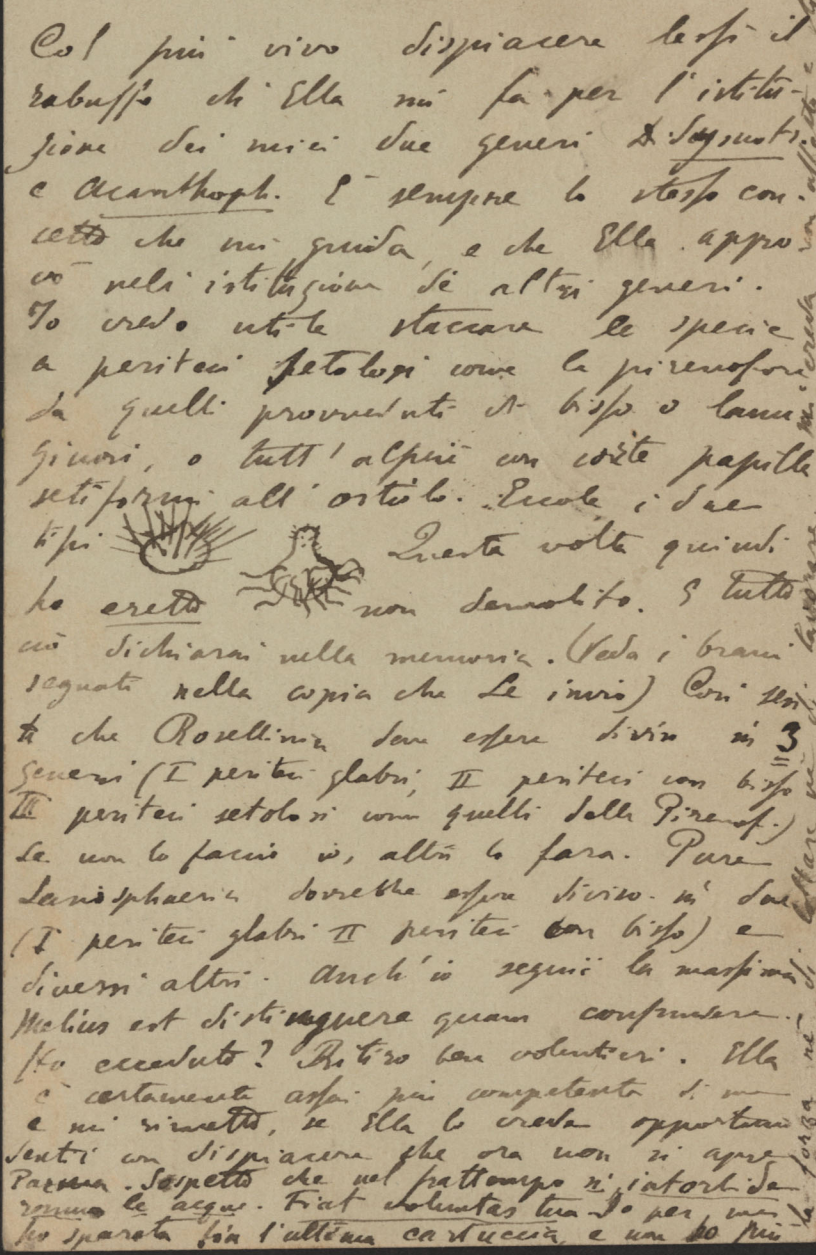 Col più vivo dispiacere lessi il
rabuffo ch'Ella mi fa per l'istitu-
zione dei miei due generi
e Acanthoph. È sempre lo stesso con-
cetto che mi guida, e che Ella appro-
vò nell'istituzione de altri generi.
Io credo utile staccare le specie
a periteci setolosi come la pirenofora
da quelli provveduti di bisso o lanu
ginosi, o tutt'al più con corte papille
setiformi all'ostiolo. Eccole i due
tipi Questa volta quindi
ho eretto non demolito. E tutto
ciò dichiarai nella memoria. (Veda i brani
segnati nella copia che Le invio) Così sen
ti che Rosellinia deve essere divisa in 3
generi (I periteci glabri, II periteci con bisso
III periteci setolosi come quelli della Pirenof.)
Se non lo faccio io, altri lo farà. Pure
Lasiosphaeria dovrebbe essere diviso in due
(I periteci glabri II periteci con bisso) e
diversi altri. Anch'io seguii la massima
Melius est distinguere quam confundere.
Ho ecceduto? Ritiro ben volentieri. Ella
è certamente assai più competente di me
e mi rimetto, se Ella lo creda opportuno
Sentii con dispiacere che ora non si apre
Parma. Sospetto che nel frattempo si intorbide
ranno le acque. Fiat voluntas tua. Io per me
ho sparata fin l'ultima cartuccia, e non ho più
la forza nè di lottare nè di lavorare. mi creda